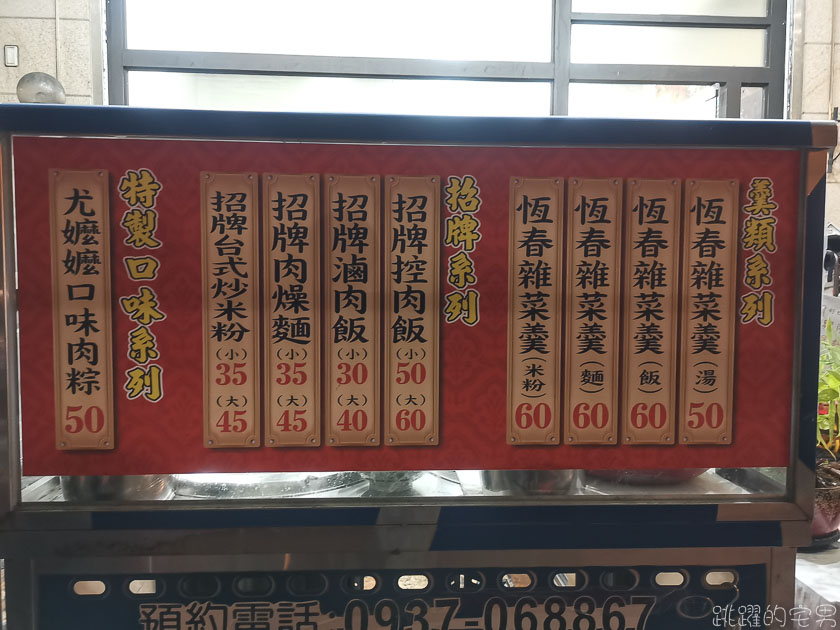 羹類系列
恆春雜菜羹(湯)50
恆春雜菜羹(飯)60
恆春雜菜羹(麵)60
恆春雜菜羹(米粉)60
招牌系列
招牌控肉飯(小)50(大)60
招牌滷肉飯(小)30(大)40
招牌肉燥麵(小)35(大)45
招牌台式炒米粉(小)35(大)45
特製口味系列
尤嬤嬤口味肉粽50
預約電話:0937-068867
跳躍的宅男